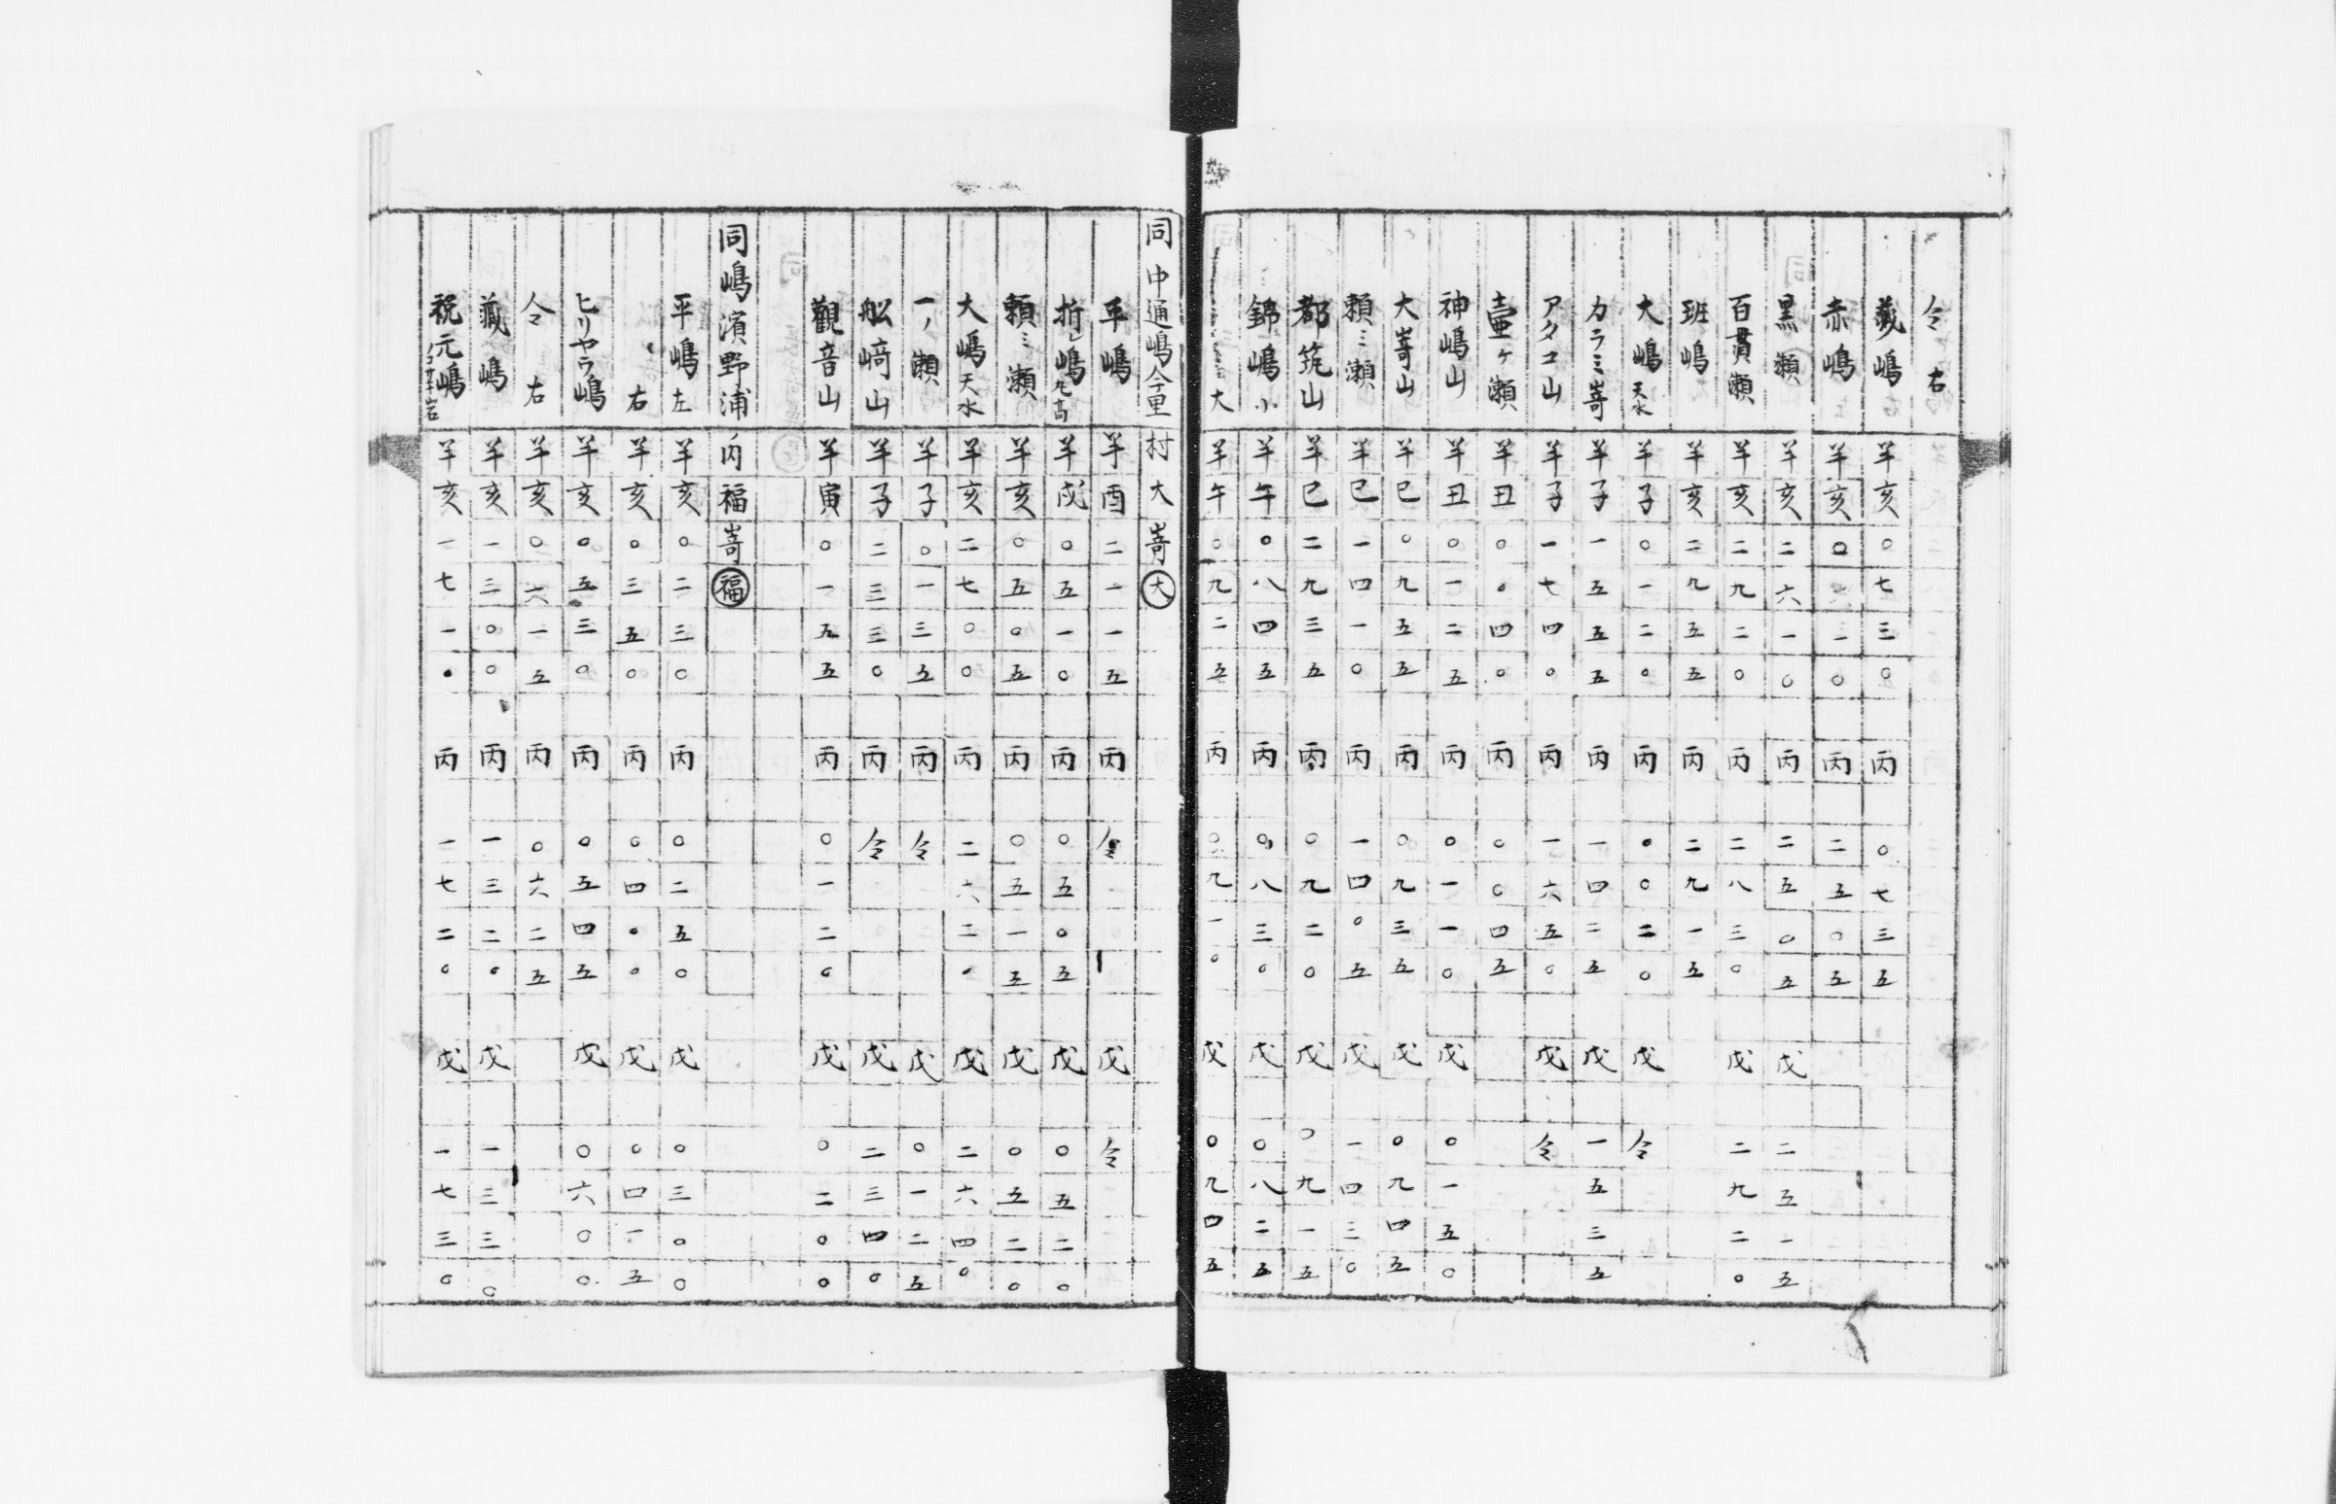 令 右
蔵嶋 羊亥 〇七三〇 丙 〇七三五
赤嶋 羊亥 丙 二五〇五
黒瀬 羊亥 二六一〇 丙 二五〇五 戊 二五一五
百貫瀬 羊亥 二九二〇 丙 二八三〇 戊 二九二〇
班嶋 羊亥 二九五五 丙 二九一五
大嶋 天水 羊子 〇一二〇 丙 〇〇二〇 戊 令
カラミ嵜 羊子 一五五五 丙 一四二五 戊 一五三五
アタコ山 羊子 一七四〇 丙 一六五〇 戊 令
壷ヶ瀬 羊丑 〇〇四〇 丙 〇〇四五
神嶋山 羊丑 〇一二五 丙 〇一一〇 戊 〇一五〇
大嵜山 羊巳 〇九五五 丙 〇九三五 戊 〇九四五
頼ミ瀬 羊巳 一四一〇 丙 一四〇五 戊 一四三〇
都筑山 羊巳 二九三五 丙 〇九二〇 戊 〇九一五
錦嶋 小 羊午 〇八四五 丙 〇八三〇 戊 〇八二五
大 羊午 〇九二五 丙 〇九一〇 戊 〇九四五
同 中通嶋今里村大嵜 大
平嶋 羊酉 二一一五 丙 令 戊 令
折嶋 羊戌 〇五一〇 丙 〇五〇五 戊 〇五二〇
頼ミ瀬 羊亥 〇五〇五 丙 〇五一五 戊 〇五二〇
大嶋 天水 羊亥 二七〇〇 丙 二六二〇 戊 二六四〇
一ノ瀬 羊子 〇一三五 丙 令 戊 〇一二五
舩﨑山 羊子 二三三〇 丙 令 戊 二三四〇
觀音山 羊寅 〇一五五 丙 〇一二〇 戊 〇二〇〇
同嶋濱野浦ノ内福嵜 福
平嶋 左 羊亥 〇二三〇 丙 〇二五〇 戊 〇三〇〇
右 羊亥 〇三五〇 丙 〇四〇〇 戊 〇四一五
ヒリヤウ嶋 羊亥 〇五三〇 丙 〇五四五 戊 〇六〇〇
令 右 羊亥 〇六一五 丙 〇六二五
蔵嶋 羊亥 一三〇〇 丙 一三二〇 戊 一三三〇
祝元嶋 羊亥 一七一〇 丙 一七二〇 戊 一七三〇